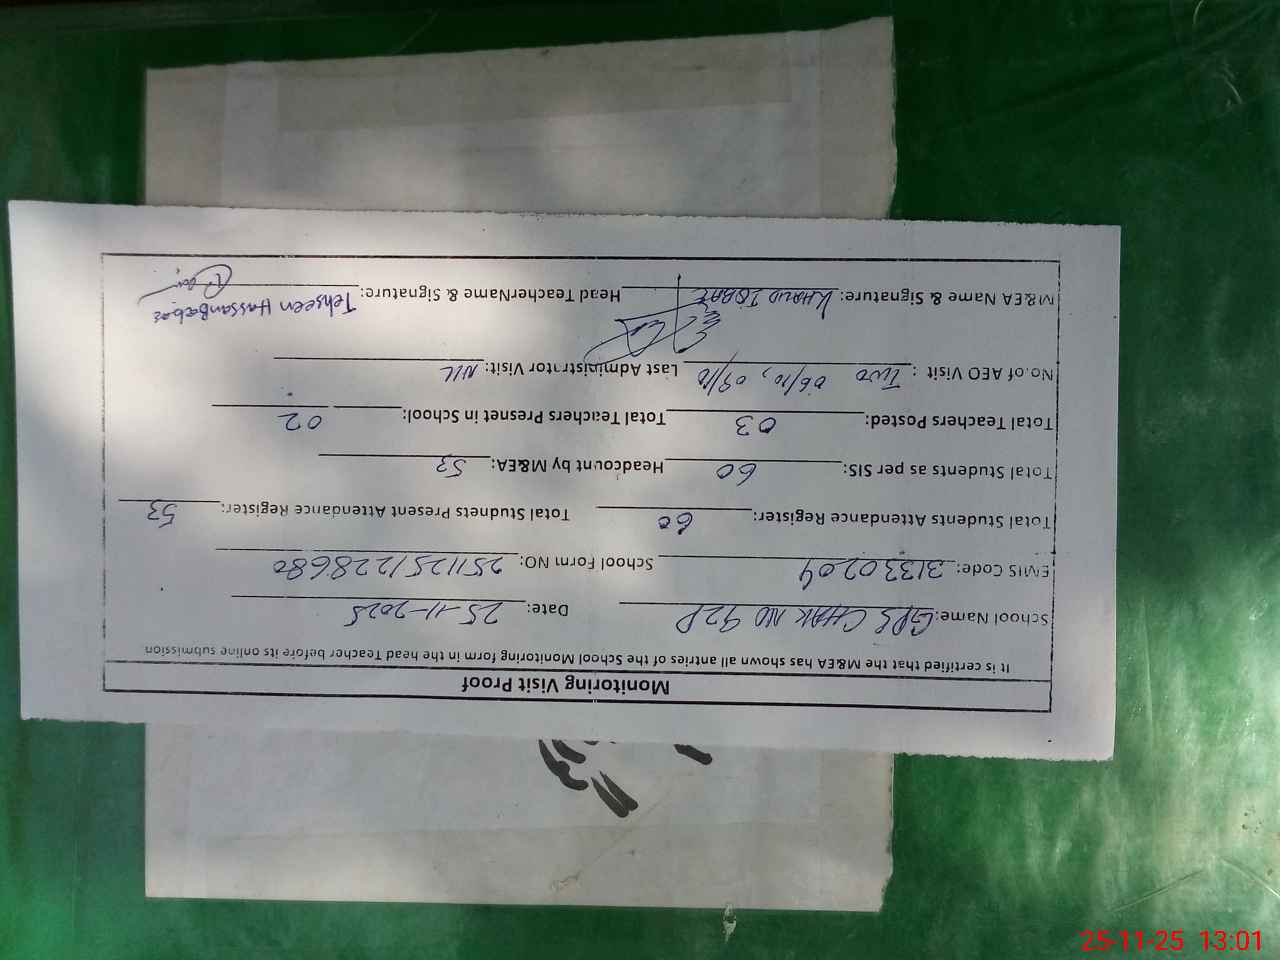 Monitoring Visit Proof
It is certified that the M&EA has shown all antries of the School Monitoring form in the head Teacher before its online submission
School Name: GPS CHAK NO 92P Date: 25-11-2025
EMIS Code: 31330204 School Form NO: 2511251228680
Total Students Attendance Register: 60 Total Studnets Present Attendance Register: 53
Total Students as per SIS: 60 Headcount by M&EA: 53
Total Teachers Posted: 03 Total Teachers Presnet in School: 02
No.of AEO Visit : Two 06/10, 09/10 Last Administrator Visit: NIL
M&EA Name & Signature: KHALID IQBAL Head TeacherName & Signature: Tehseen Hassan Babar
25-11-25 13:01